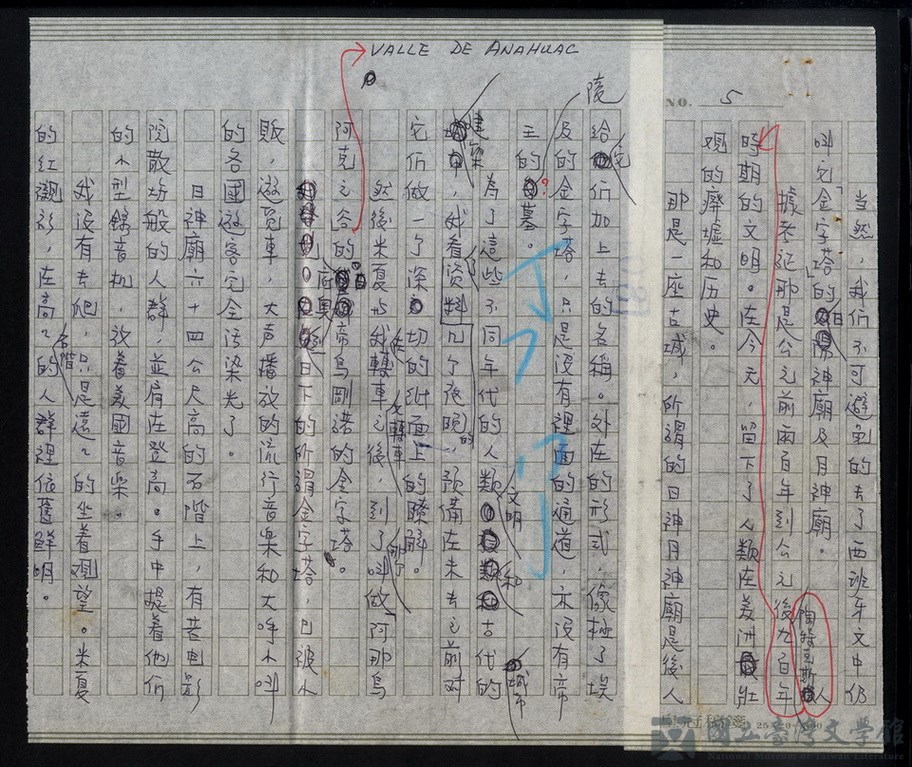 NO. 5
當然，我們不可避免的去了西班牙文中仍
叫它「金字塔」的日神廟及月神廟。
據考証那是公元前兩百年到公元後九百年
陶特克斯人
時期的文明。在今天，留下了人類在美洲壯
觀的廢墟和历史。
那是一座古城，所謂的日神月神廟是後人
給它們加上去的名稱。外在的形式，像極了埃
及的金字塔，只是沒有裡面的通道，亦沒有帝
王的陵墓。
為了這些不同年代的人類文明和古代的城市
建築，我看資料看了幾晚，預備在未去之前对
它們做一个深切的紙面上的瞭解。
VALLE DE ANAHUAC
然後米夏与我轉車又轉車之後，到了叫做阿那烏
阿克之谷的帝烏剛諾的金字塔。
日下的所謂金字塔，已被小
販，遊覽車，大声播放的流行音樂和大呼小叫
的各國遊客完全污染光了。
日神廟六十四公尺高的石階上，有若电影
院散場般的人群，並肩在登高。手中提着他們
的小型錄音机，放着美國音樂。
我沒有去爬，只是遠遠的坐着觀望。米夏
的紅襯衫，在高高的石階人群裡依舊鮮明。
國立臺灣文學館
National Museum of Taiwan Literature